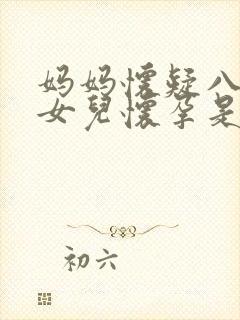 妈妈怀疑八
女儿怀孕是
初六